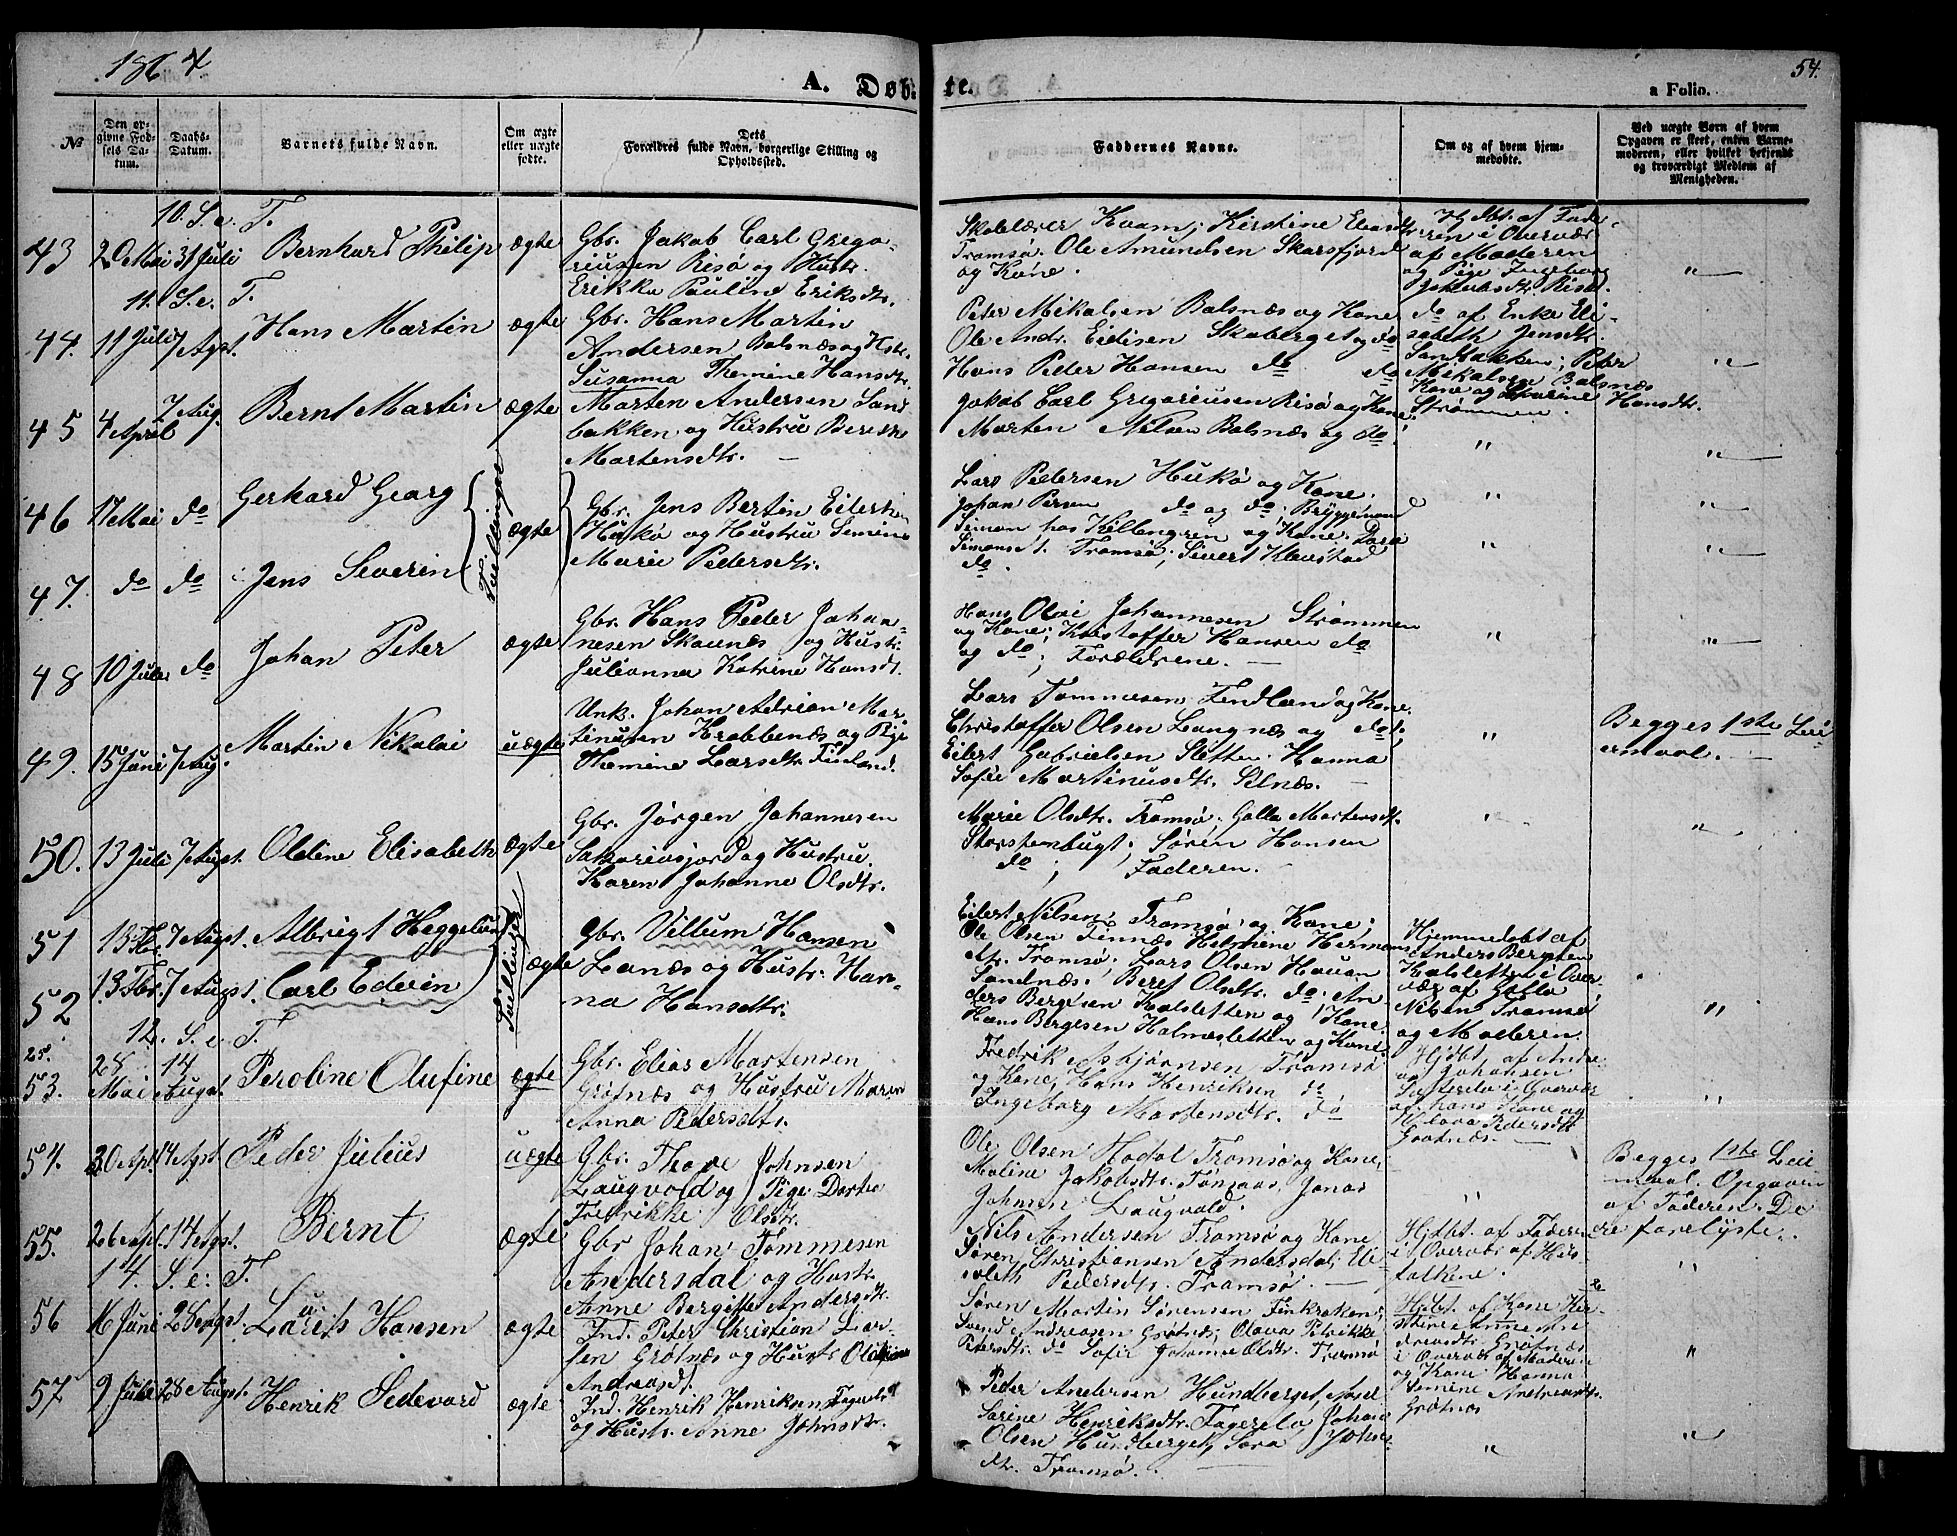 1864
A. Døb-
te.
54.
a Folio.
№
Den op-
givne Fød-
sels Da-
tum.
Daabs-
Datum.
Barnets fulde Navn.
Om ægte
eller uægte
fødte.
Dets
Forældres fulde Navn, borgerlige Stilling og
Opholdssted.
Faddernes Navne.
Om og af hvem hjem-
medøbte.
Ved uægte Børn af hvem
Opgaven er skeet, enten Barne-
moderen, eller hvilket bekjendt
og troværdigt Medlem af
Menigheden.
10. S. e. T.
43 20 Mai 31 Juli Bernhard Philip ægte
Gbr. Jakob Carl Grego-
riusen Risø og Hustr.
Erikka Pauline Eriksdtr.
Skolelærer Kvam; Kirstine
Tromsø. Ole Amundsen Skarsfjord
og Kone.
Hjdbt. af Fade-
ren i Overvær
af Moderen
og Pige Ingeborg
Jakobsdtr. Risø.
"
11. S. e. T.
44. 11 Juli 7 Agst. Hans Martin ægte
Gbr. Hans Martin
Andersen Balsnæs og Hstr.
Susanna Themine Hansdtr.
Peter Mikalsen Balsnæs og Kone
Ole Andr. Eidisen Skoberget og do
Hans Peder Hansen do do
do af Enke Eli-
sabeth Jensdtr.
Sandbakken; Peter
Mikalsen Balsnæs
Kone og Hansdtr.
Strømmen.
"
45 4 April 7 Aug. Bernt Martin ægte
Morten Andersen Sand-
bakken og Hustru Berith
Mortensdtr.
Jakob Carl Gregoriusen Risø og Kone;
Morten Nilsen Balsnæs og do
"
"
46 17 Mai do Gerhard Georg
Tvillinger
ægte
Gbr. Jens Bertin Eilertsen
Hukø og Hustru Simine
Marie Pedersdtr.
Lars Pedersen Hukø og Kone.
Johan Persen do og do; Bryggemand
Simon hos Killengren og Kone; Dora
Simonsdt. Tromsø; Sivert Havstad
do.
"
"
47. do do Jens Severin
"
"
48 10 Juli do Johan Peter ægte
Gbr. Hans Peder Johan-
nesen Skavnæs og Hustr.
Julianna Katrine Hansdt.
Hans Olai Johannesen Strømmen
og Kone; Kristoffer Hansen do
og do; Forældrene.
"
"
49. 15 Juni 7 Aug. Martin Nikolai uægte
Unk. Johan Adrian Mar-
tinusen Krabbenæs og Pige
Themine Larsdtr. Finland.
Lars Tommesen Findland og Kone.
Christoffer Olsen Langnæs og do;
Eilert Gabrielsen Sletten. Hanna
Sofie Martinusdtr. Selnæs.
"
Begges 1ste Lei-
ermaal.
50. 13 Juli 7 Augst. Oleline Elisabeth ægte
Gbr. Jørgen Johannesen
Sakariasjord og Hustru
Karen Johanne Olsdtr.
Marie Olsdtr. Tromsø; Golla Mortensdt.
Storstenbugt; Søren Hansen
do; Faderen.
"
"
51 13 Fbr. 7 Augst. Albrigt Heggelund
Tvillinger
ægte
Gbr. Villum Hansen
Lanæs og Hustr. Han-
na Hansdtr.
52 13 Fbr. 7 Augst. Carl Edvin
Eilert Nilsen; Tromsø; og Kone;
Ole Olsen Finnæs Helmine Hermans-
dtr. Tromsø; Lars Olsen Hauan
Sandnæs; Beret Olsdtr. do; An-
ders Bergesen Kalsletten og Kone.
Hans Bergesen Holmesletten og Kone.
Hjemmedøbt af
Anders Bergesen
Kalsletten i Over-
vær af Golla
Nilsen Tromsø
og Moderen.
"
12. S. e. T.
53. 28 Mai 14 Augst. Peroline Olufine ægte
Gbr. Elias Mortensen
Grøtnæs og Hustru Maren
Anna Pedersdtr.
Fredrik Asbjørnsen Tromsø
og Kone; Hans Henriksen do
Ingeborg Mortensdtr. do
Hjdbt. af Andr.
Johansen
i Overvær
af hans Kone og
Pedersdt.
Grøtnæs.
"
54. 30 Apl. 14 Agst. Peder Julius uægte
Gbr. Thove Johnsen
Laugvold og Pige Dorthea
Fredrikke Olsdtr.
Ole Olsen Hodal Tromsø og Kone,
Maline Jakobsdtr. Tønsaas; Jonas
Johnsen Laugvold.
"
Begges 1ste Lei-
ermaal. Opgaven
af Faderen. De
ere forelyste.
55. 26 Apl. 14 Agst. Bernt ægte
Gbr Johan Tommesen
Andersdal og Hustr.
Anne Bergitte Andersdtr.
Nils Andersen Tromsø og Kone
Søren Christiansen Andersdal; Eli-
sabeth Pedersdtr. Tromsø.
Hjdbt. af Faderen
i Overvær af Hus-
folkene.
"
14. S. e. T.
56 16 Juni 28 Augst. Laurits Hansen ægte
Ind. Peter Christian Lar-
sen Grøtnæs og Hustr.
Andreasdt.
Søren Martin Sørensen Finkroken;
Svend Andreasen Grøtnæs; Olava Petrikke
Petersdtr. do Sofie Johanna Olsdtr. Tromsø
Hjdbt. af Kone Kir-
stine Anne An-
dreasdtr. Grøtnæs
i Overvær af Moderen
og Kone Hanna
Andreasdtr.
Grøtnæs
"
57. 9 Juli 28 Augst. Henrik Sedevard ægte
Ind. Henrik Henriksen
og Hustr. Anne Johnsdtr.
Peder Andersen Hundberget,
Sarine Henriksdtr. Fagerlia Johan
Olsen Hundberget, Sara Johns-
dtr. Tromsø.
"
"